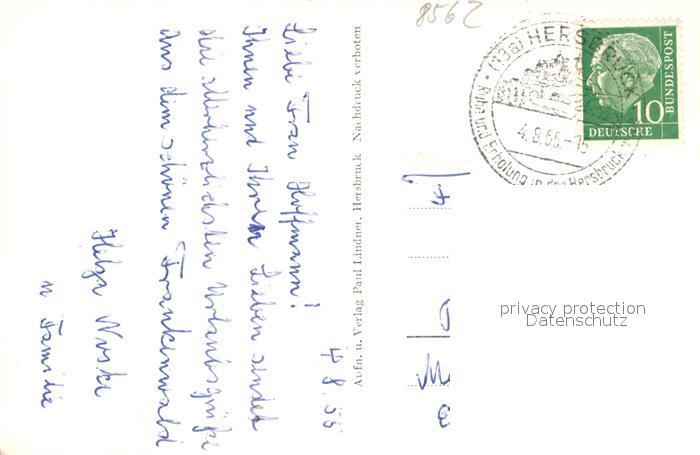 8562
4.8.55
Liebe Frau Hoffmann!
Ihnen und Ihren Lieben sendet
die allerherzlichsten Urlaubsgrüße
aus dem schönen Frankenwald
Helga
u Familie
Aufn. u. Verlag Paul Lindner, Hersbruck Nachdruck verboten
(13a) HERSBRUCK
4.8.55.-16
Ruhe und Erholung in der Hersbrucker
10
DEUTSCHE
BUNDESPOST
privacy protection
Datenschutz